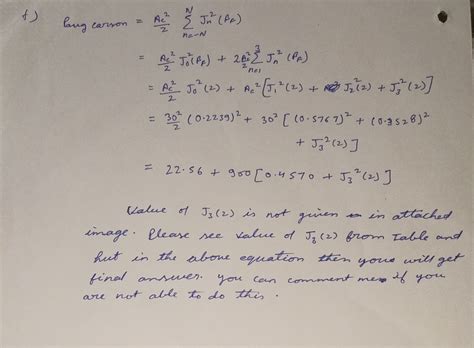 f) Pavg carson = Ac²/2 Σ(n=-N to N) Jn²(βf)
= Ac²/2 J0²(βf) + 2Ac²/2 Σ(n=1 to 3) Jn²(βf)
= Ac²/2 J0²(2) + Ac² [J1²(2) + J2²(2) + J3²(2)]
= 30²/2 (0.2239)² + 30² [(0.5767)² + (0.3528)²
+ J3²(2)]
= 22.56 + 900[0.4570 + J3²(2)]
Value of J3(2) is not given in attached
image. Please see value of J3(2) from Table and
but in the above equation then you will get
final answer. you can comment me if you
are not able to do this.